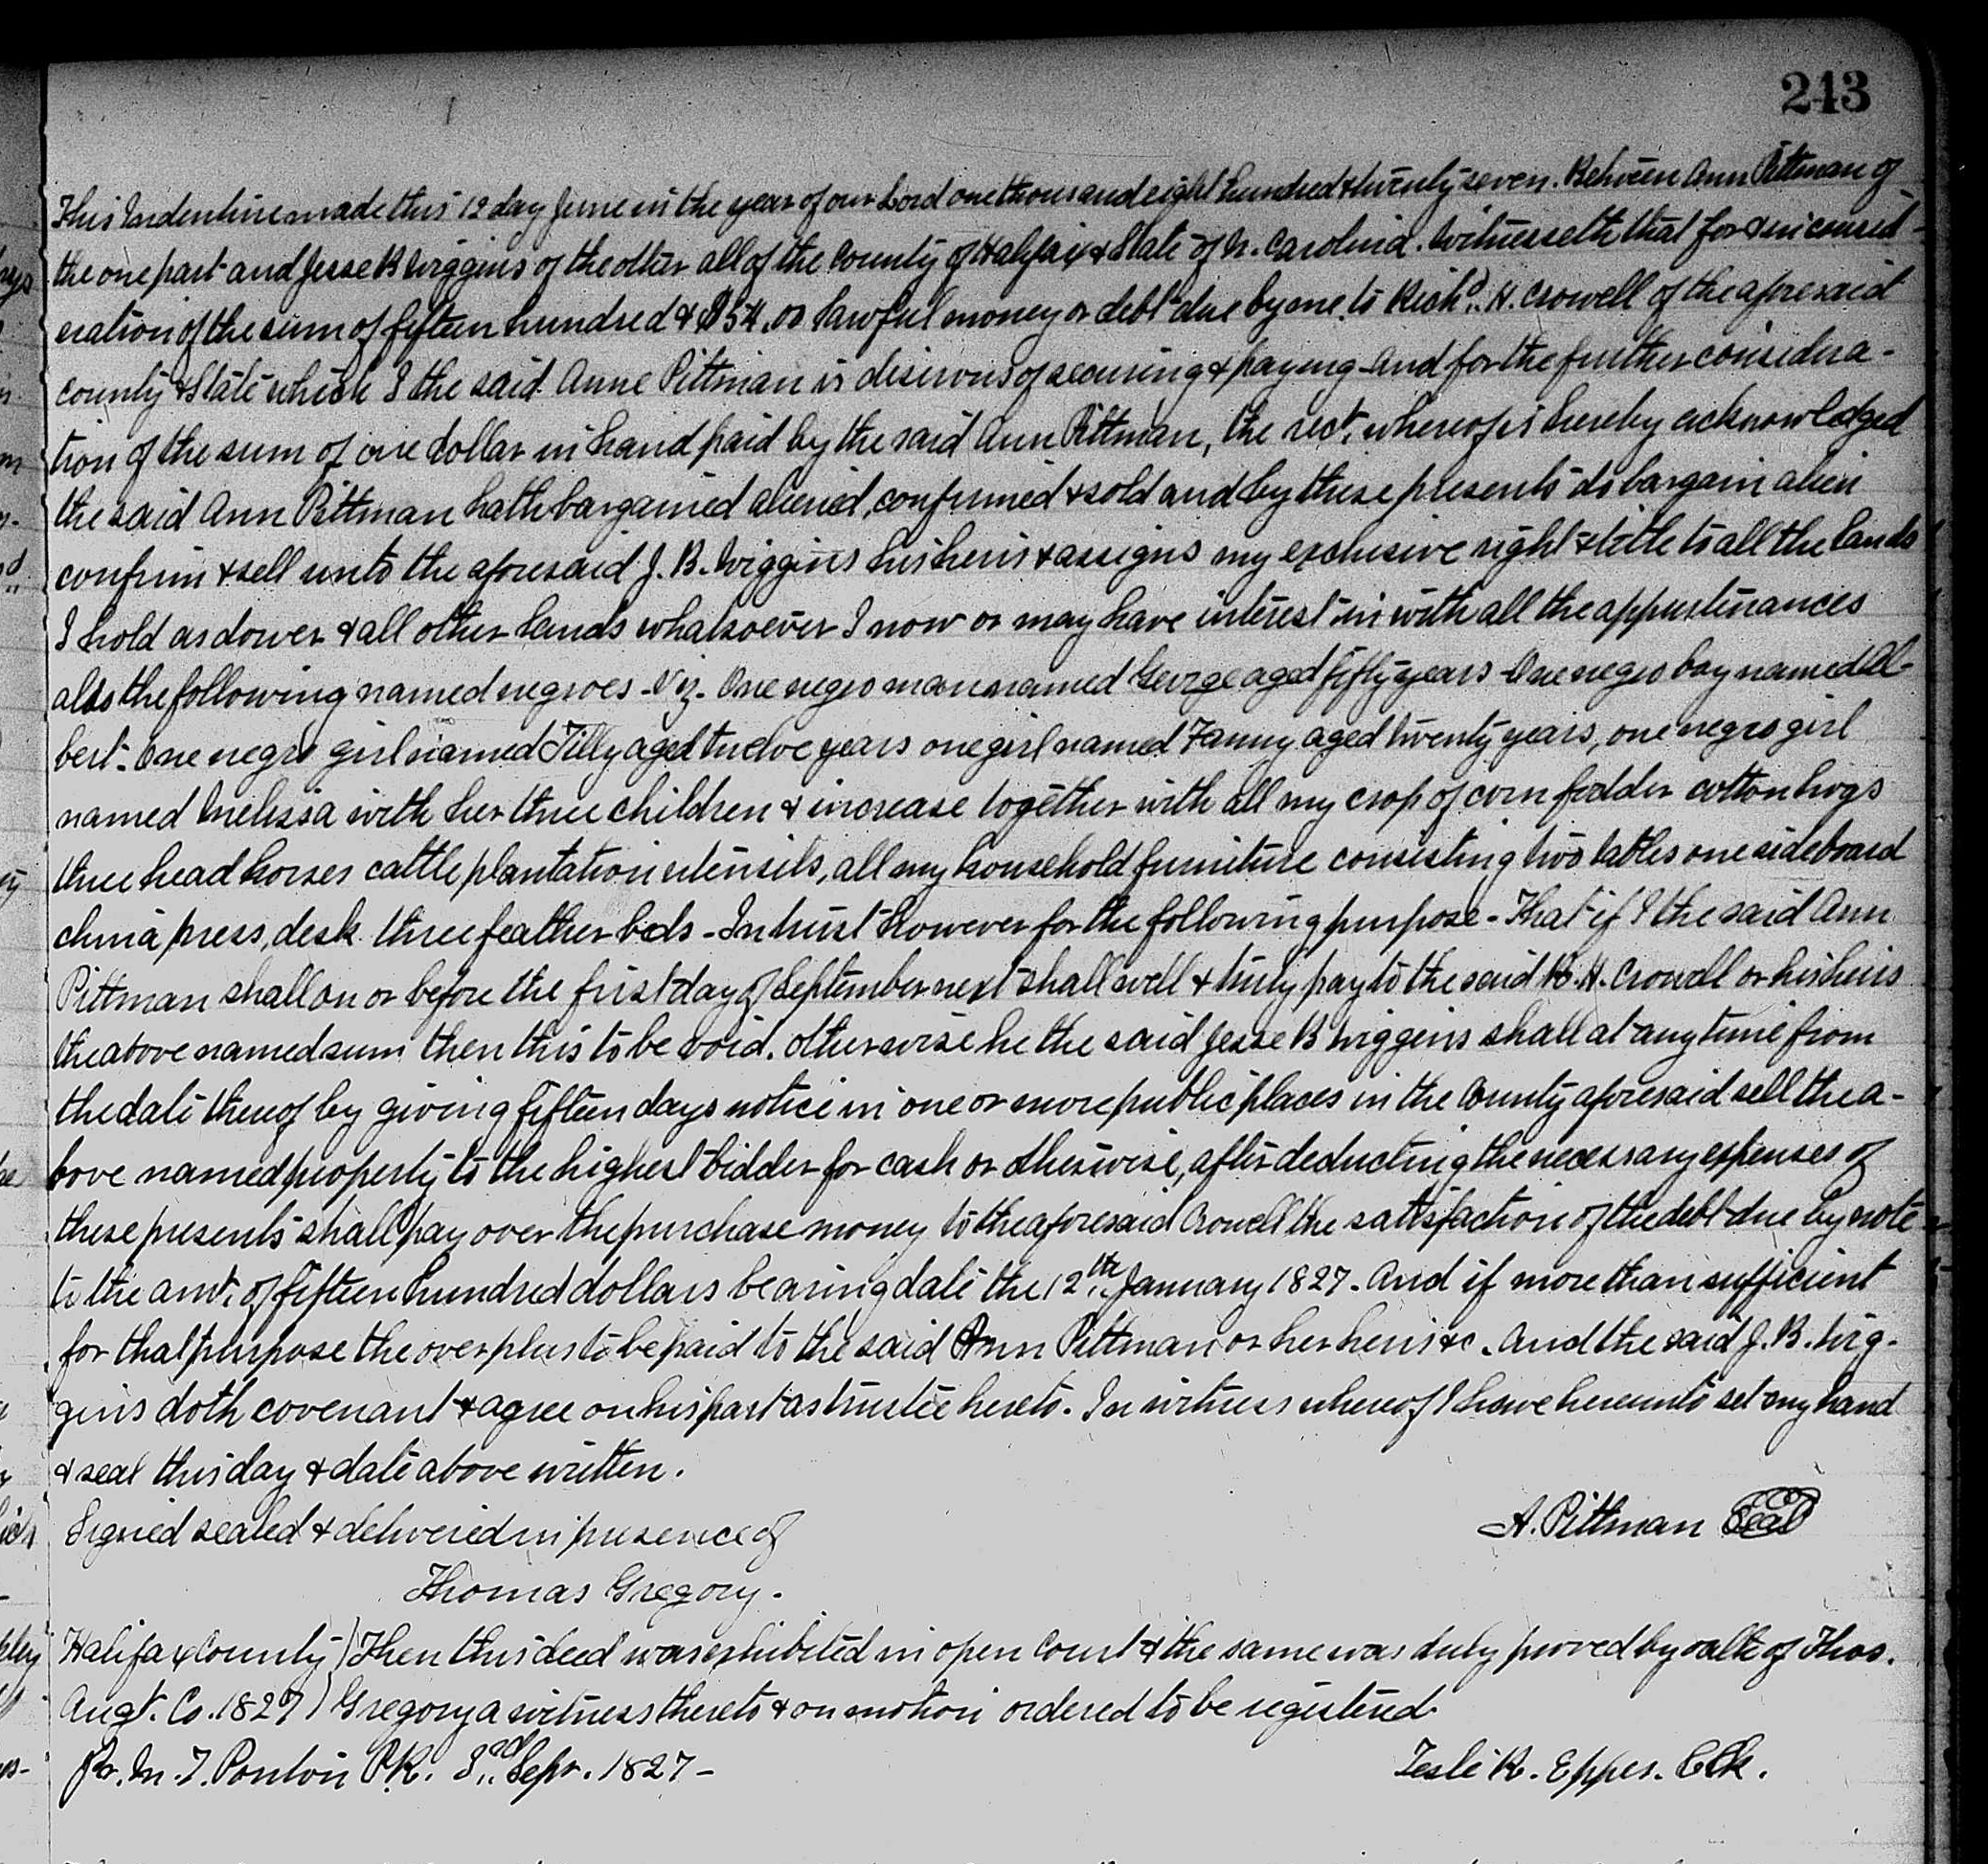 243
This Indenture made this 12 day June in the year of our Lord one thousand eight hundred & twenty seven. Between Ann Pittman of
the one part and Jesse B Wiggins of the other all of the County of Halifax & State of N. Carolina. Witnesseth that for & in consid-
eration of the sum of fifteen hundred & $54.00 lawful money or debt due by me to Richd. H. Crowell of the aforesaid
county & State which I the said Anne Pittman is desirous of securing & paying and for the further considera-
tion of the sum of one dollar in hand paid by the said Ann Pittman, the rect. whereof is hereby acknowledged
the said Ann Pittman hath bargained aliened, confirmed & sold and by these presents do bargain alien
confirm & sell unto the aforesaid J. B. Wiggins his heirs & assigns my exclusive right & title to all the lands
I hold as dower & all other lands whatsoever I now or may have interest in with all the appurtenances
also the following named negroes - Viz. One negro man named George aged fifty years One negro boy named Al-
bert - One negro girl named Tilly aged twelve years one girl named Fanny aged twenty years, one negro girl
named Melissa with her three children & increase together with all my crop of corn fodder cotton hogs
three head horses cattle plantation utensils, all my household furniture consisting two tables one sideboard
china press, desk three feather beds - In trust however for the following purpose - That if I the said Ann
Pittman shall on or before the first day of September next shall well & truly pay to the said R. H. Crowell or his heirs
the above named sum then this to be void. otherwise he the said Jesse B Wiggins shall at any time from
the date thereof by giving fifteen days notice in one or more public places in the County aforesaid sell the a-
bove named property to the highest bidder for cash or otherwise, after deducting the necessary expenses of
these presents shall pay over the purchase money to the aforesaid Crowell the satisfaction of the debt due by note
to the amt. of fifteen hundred dollars bearing date the 12th January 1827. And if more than sufficient
for that purpose the overplus to be paid to the said Ann Pittman or her heirs &c. And the said J. B. Wig-
gins doth covenant & agree on his part as trustee hereto. In witness whereof I have hereunto set my hand
& seal this day & date above written.
Signed sealed & delivered in presence of A. Pittman Seal
Thomas Gregory.
Halifax County ) Then this deed was exhibited in open Court & the same was duly proved by oath of Thos.
Augt. Co. 1827 ) Gregory a witness thereto & on motion ordered to be registered
Pr. M. T. Ponton P.R. 3rd Sepr. 1827 - Teste R. Eppes. Clk.